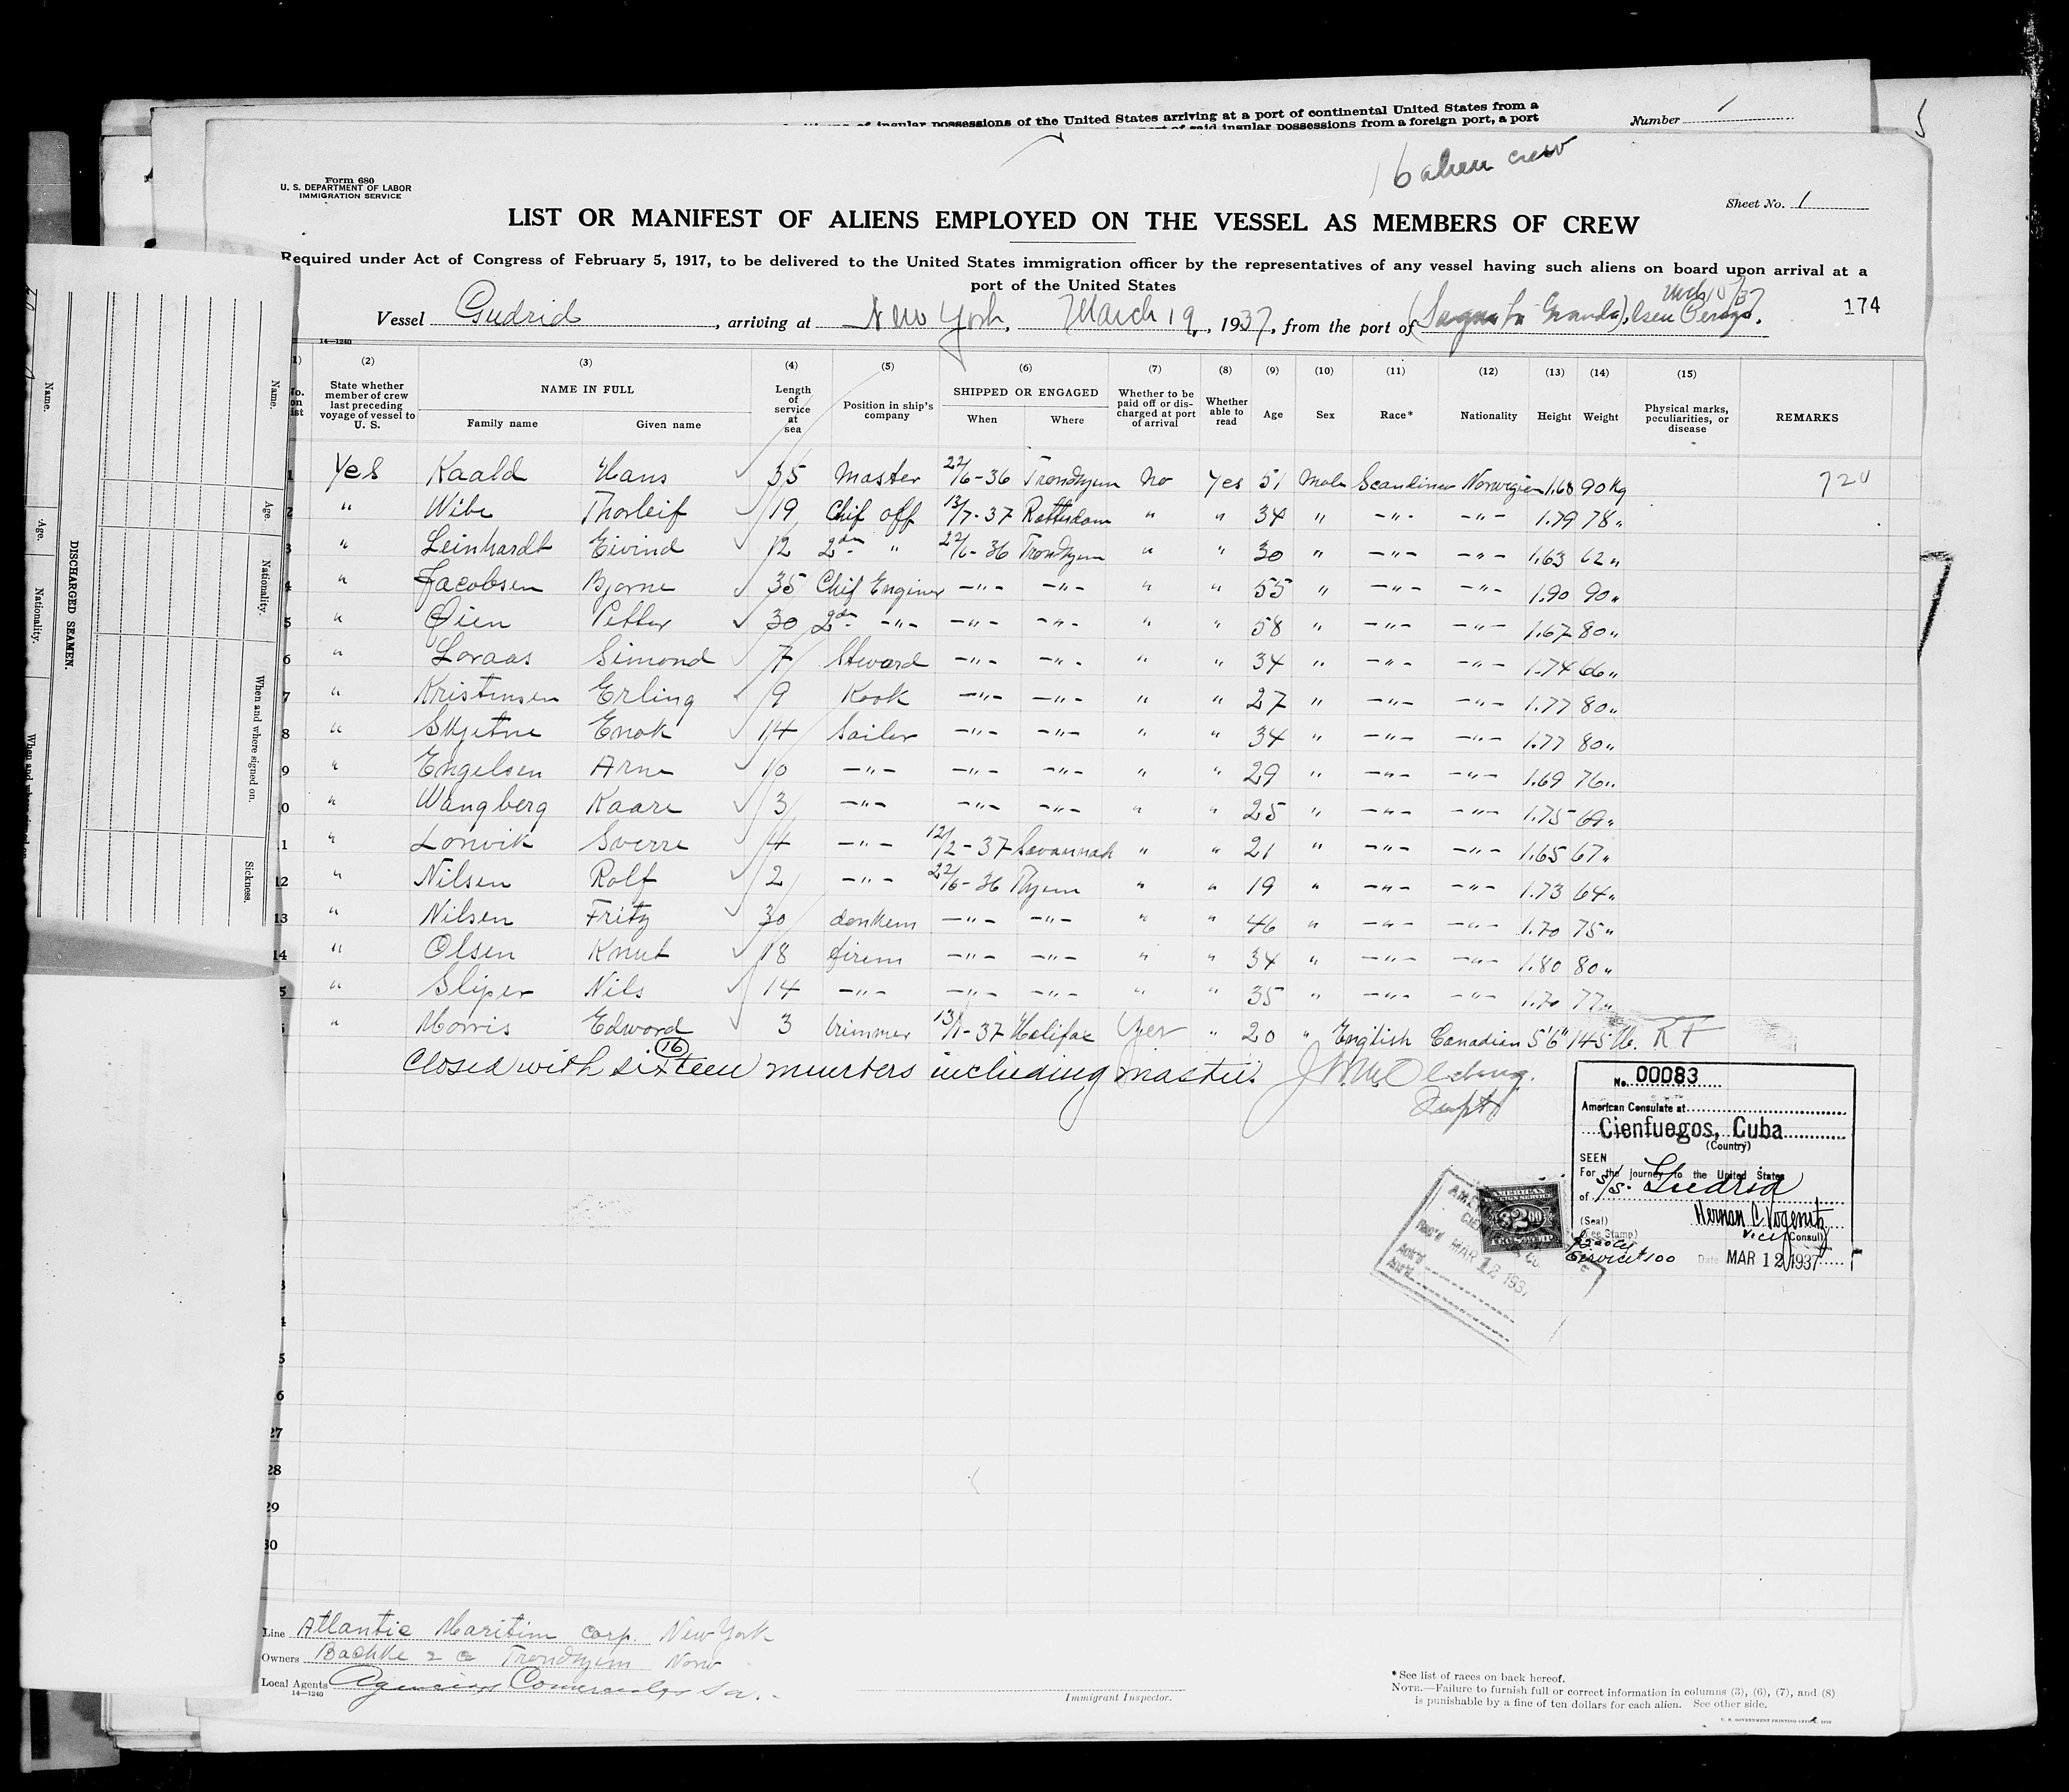 insular possessions of the United States arriving at a port of continental United States from a
of said insular possessions from a foreign port, a port
Number 1
16 alien crew
Form 680
U. S. DEPARTMENT OF LABOR
IMMIGRATION SERVICE
Sheet No. 1
LIST OR MANIFEST OF ALIENS EMPLOYED ON THE VESSEL AS MEMBERS OF CREW
Required under Act of Congress of February 5, 1917, to be delivered to the United States immigration officer by the representatives of any vessel having such aliens on board upon arrival at a
port of the United States
Vessel Gudrid, arriving at New York, March 19, 1937, from the port of
174
14—1240
(2) (3) (4) (5) (6) (7) (8) (9) (10) (11) (12) (13) (14) (15)
State whether member of crew last preceding voyage of vessel to U. S. NAME IN FULL Family name Given name Length of service at sea Position in ship's company SHIPPED OR ENGAGED When Where Whether to be paid off or discharged at port of arrival Whether able to read Age Sex Race* Nationality Height Weight Physical marks, peculiarities, or disease REMARKS
1 Yes Kaald Hans 35 Master 22/6-36 Trondhjem No Yes 51 Male Scandinav Norwegian 1.68 90 Kg 720
2 " Wibe Thorleif 19 Chif off 13/7-37 Rotterdam " " 34 " -"- -"- 1.79 78 "
3 " Leinhardt Eivind 12 2den " 22/6-36 Trondhjem " " 30 " -"- -"- 1.63 62 "
4 " Jacobsen Bjarne 35 Chif Enginer -"- -"- " " 55 " -"- -"- 1.90 90 "
5 " Øien Petter 30 2den -"- -"- -"- " " 58 " -"- -"- 1.67 80 "
6 " Loraas Simond 7 Steward -"- -"- " " 34 " -"- -"- 1.74 66 "
7 " Kristensen Erling 9 Kook -"- -"- " " 27 " -"- -"- 1.77 80 "
8 " Skjetne Enok 14 Sailor -"- -"- " " 34 " -"- -"- 1.77 80 "
9 " Engelsen Arne 10 -"- -"- -"- " " 29 " -"- -"- 1.69 76 "
0 " Wangberg Kaare 3 -"- -"- -"- " " 25 " -"- -"- 1.75 69 "
1 " Lonvik Sverre 4 -"- 12/2-37 Savannah " " 21 " -"- -"- 1.65 67 "
12 " Nilsen Rolf 2 -"- 22/6-36 Thjem " " 19 " -"- -"- 1.73 64 "
13 " Nilsen Fritz 30 donkem -"- -"- " " 46 " -"- -"- 1.70 75 "
14 " Olsen Knut 18 firem -"- -"- " " 34 " -"- -"- 1.80 80 "
5 " Sliper Nils 14 -"- -"- -"- " " 35 " -"- -"- 1.70 77 "
" Morris Edward 3 trimmer 13/1-37 Halifax Yes " 20 " English Canadian 5'6" 145 lb. R F
Closed with sixteen (16) members including master.
No. 00083
American Consulate at
Cienfuegos, Cuba
(Country)
SEEN
For the journey to the United States
of S/S. Gudrid
(Seal)
(Fee Stamp)
Vice (Consul)
Date MAR 12 1937
AMERICAN
$2.00
MAR 12 1937
27
28
29
30
Line Atlantic Maritim Corp. New York
Owners Bachke & Co Trondhjem Norw
Local Agents
14—1240
Immigrant Inspector.
* See list of races on back hereof.
NOTE.—Failure to furnish full or correct information in columns (3), (6), (7), and (8)
is punishable by a fine of ten dollars for each alien. See other side.
U. S. GOVERNMENT PRINTING OFFICE
DISCHARGED SEAMEN.
Name.
Age.
Nationality.
When and where signed on.
Sickness.
Name.
Age.
Nationality.